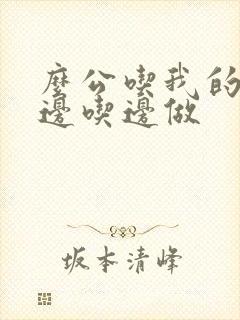 麼公喫我的
邊喫邊做
坂本清峰